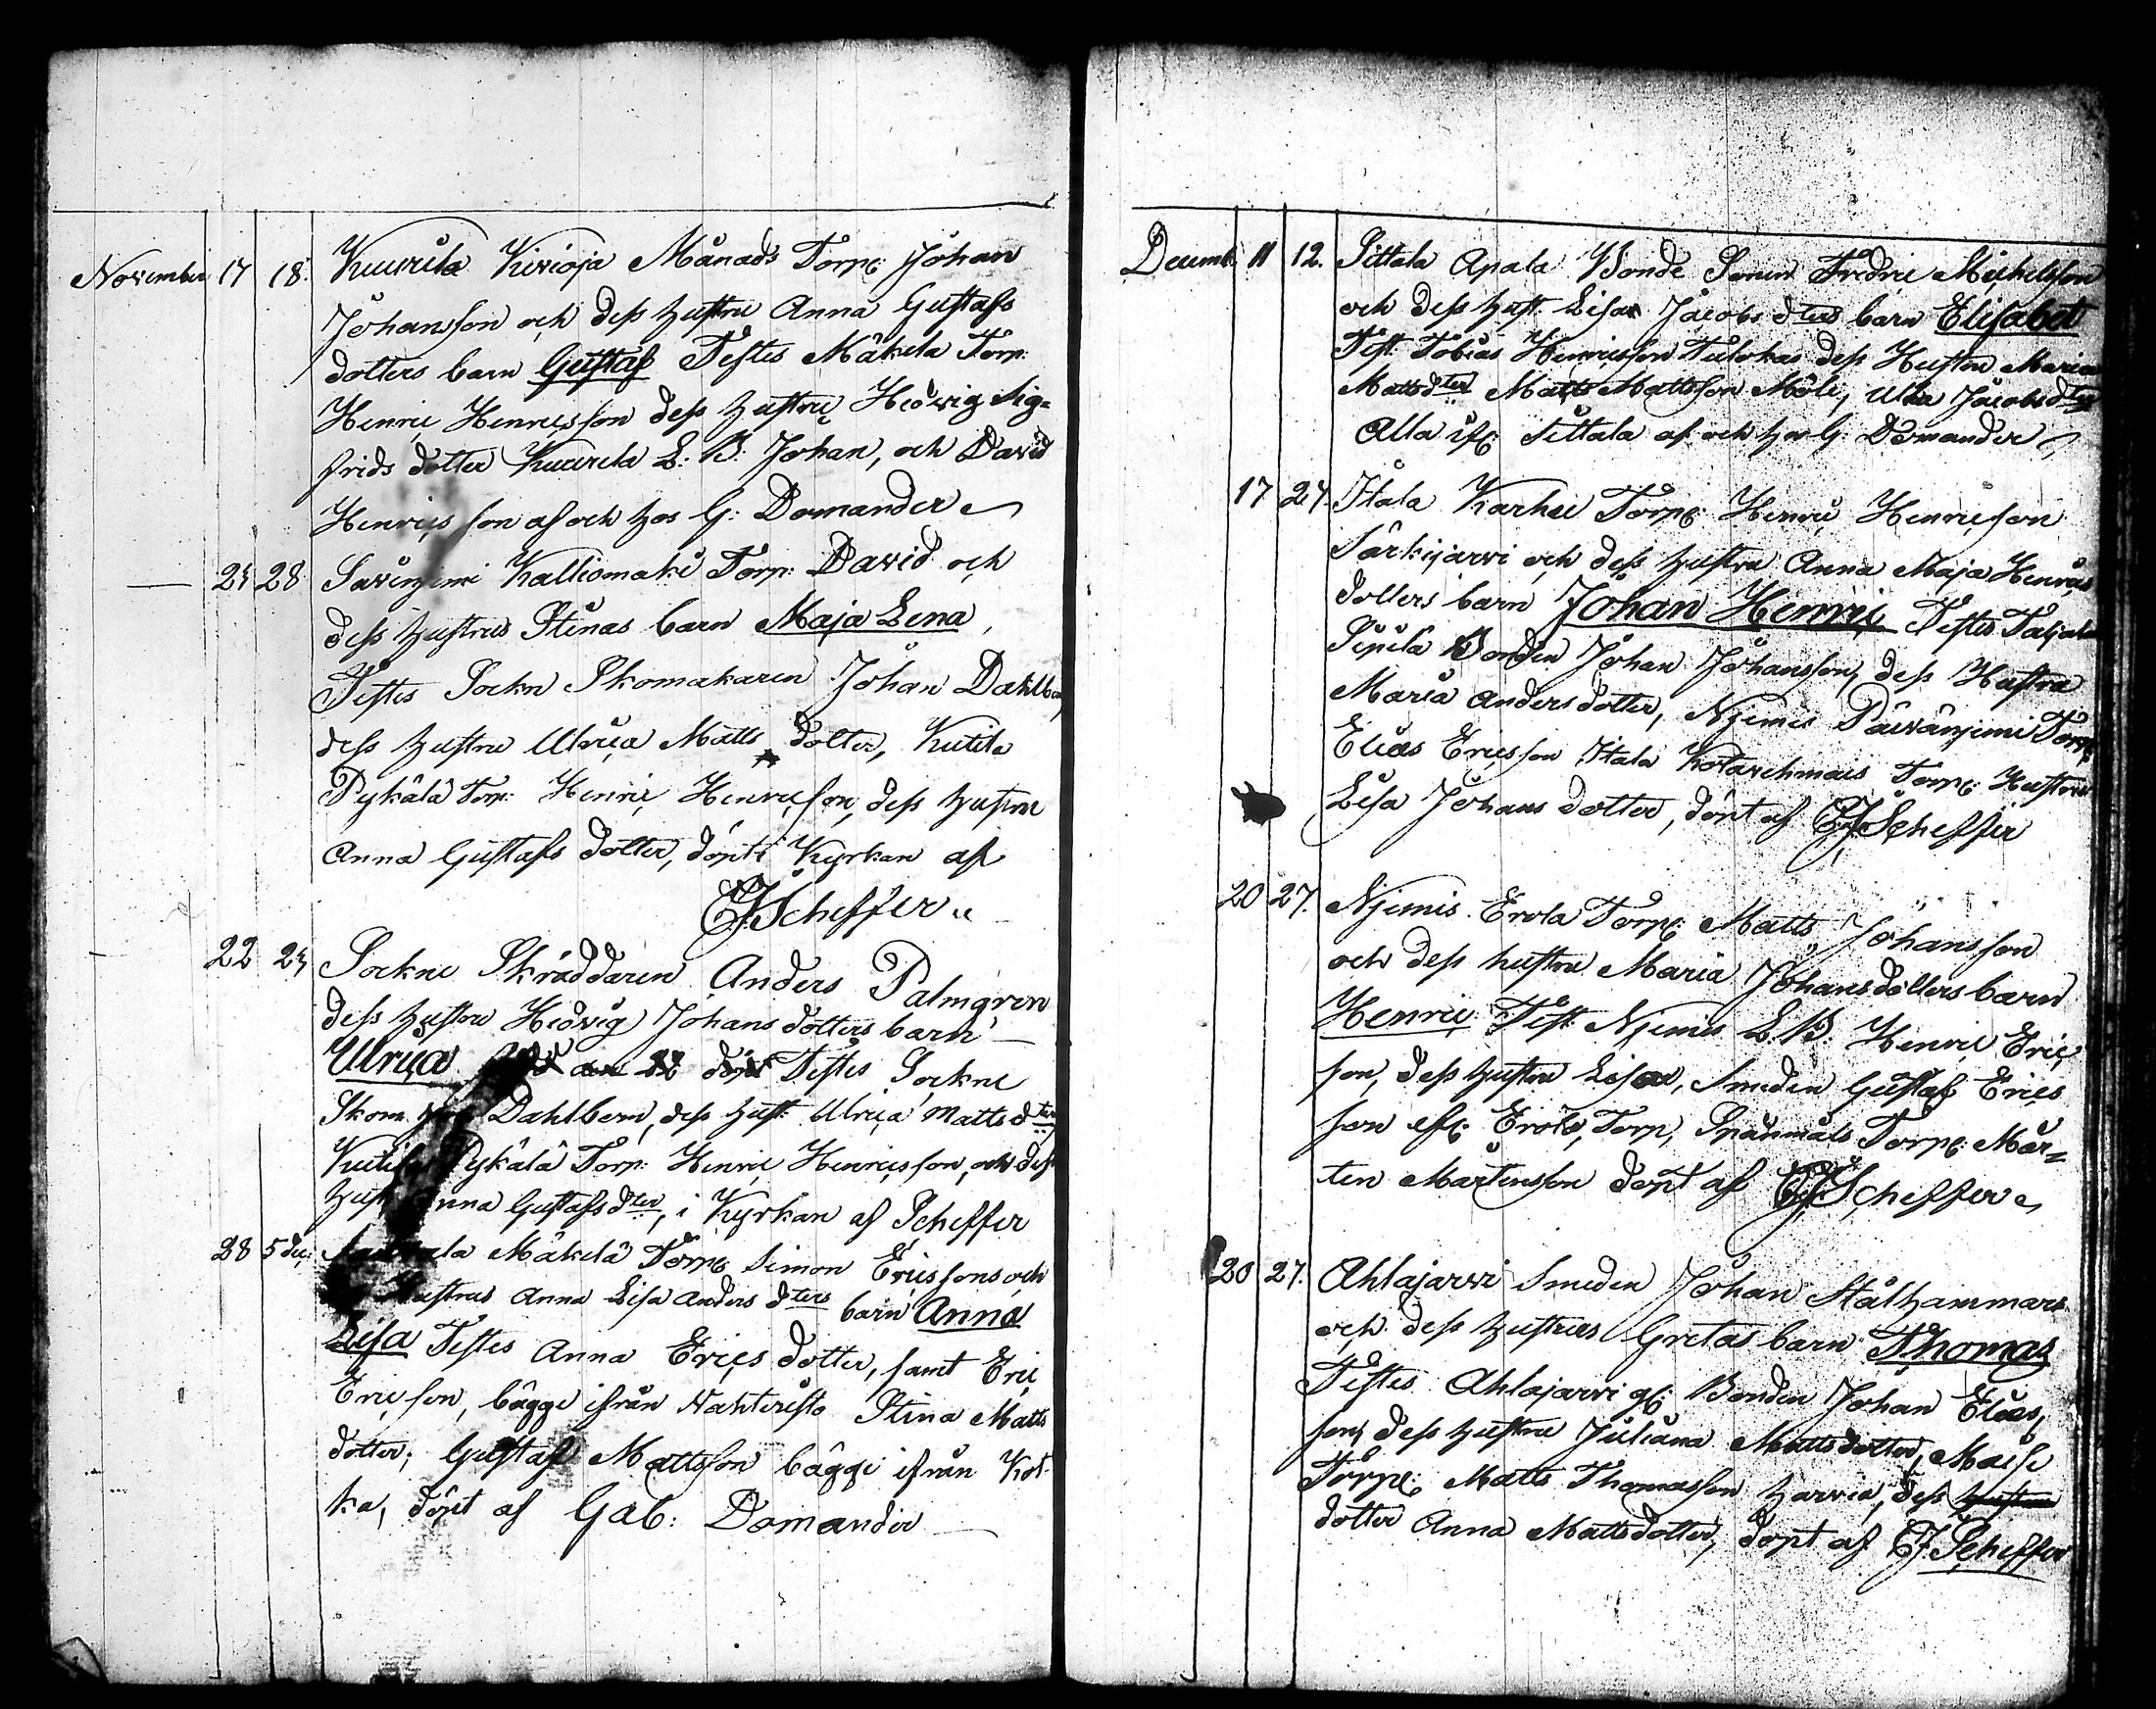 November 17 18. Kuurila Kirioja Månads Torp: Johan
Johansson och dess hustru Anna Gustafs
dotters barn Gustaf Testes Mäkelä Torp:
Henric Henricsson dess hustru Hedvig Sig=
frids dotter Kuurila L: B: Johan, och David
Henrics son af och hos G: Domander
24 28 Savinjemi Kalliomäki Torp: David och
dess hustrus Stinas barn Maja Lena,
Testes Sockn Skomakaren Johan Dahlberg
dess hustru Ulrica Matts dotter, Kutila
Pykälä Torp: Henric Henricsson, dess hustru
Anna Gustafs dotter, döpt i Kyrkan af
EJScheffer
22 24 Sockne Skräddaren Anders Palmgren
dess hustru Hedvig Johans dotters barn
Ulrica Testes Sockne
Skom: Dahlberg, dess hust: Ulrica Matts dter
Kutila Pykälä Torp: Henric Henricsson, och dess
hust Anna Gustafs dter, i Kyrkan af Scheffer
28 5 dec: Mäkelä Torp: Simon Ericssons och
hustrus Anna Lisa Anders dters barn Anna
Lisa Testes Anna Erics dotter, samt Eric
Ericsson, bägge ifrån Stina Matts
dotter, Gustaf Mattsson bägge ifrån Kot
ka, döpt af Gab: Domander
Decemb: 11 12. Sittala Apala Bonde Sonen Fredric Michelsson
och dess hust: Lisa Jacobs dters barn Elisabet
Test: Tobias Henricsson Tulokas dess Hustru Maria
Matts dter Matts Mattsson Möle, Ulla Jacobs dter
Alla ifr: Sittala af och hos G: Domander
17 24. Itala Karhu Torp: Henric Henricsson
Särkijärvi och dess hustru Anna Maja Henrics
dotters barn Johan Henric Testes
Sipilä Bonden Johan Johansson, dess Hustru
Maria Anders dotter, Njemis Päivänjemi Torp:
Elias Ericsson Itala Torp: Hustru
Lisa Johans dotter, döpt af EJScheffer
20 27. Njemis Erola Torp: Matts Johansson
och dess hustru Maria Johans dotters barn
Henric Test: Njemis L. B: Henric Eric
son, dess hustru Lisa, Smeden Gustaf Erics
son Erola, Torp, Torp: Mår=
ten Mårtensson döpt af EJScheffer
20 27. Ahlajärvi Smeden Johan Stålhammars
och dess hustrus Gretas barn Thomas
Testes Ahlajärvi Bonden Johan Elias
son, dess hustru Juliana Matts dotter,
Torp: Matts Thomasson dess hustru
dotter Anna Matts dotter, döpt af EJScheffer